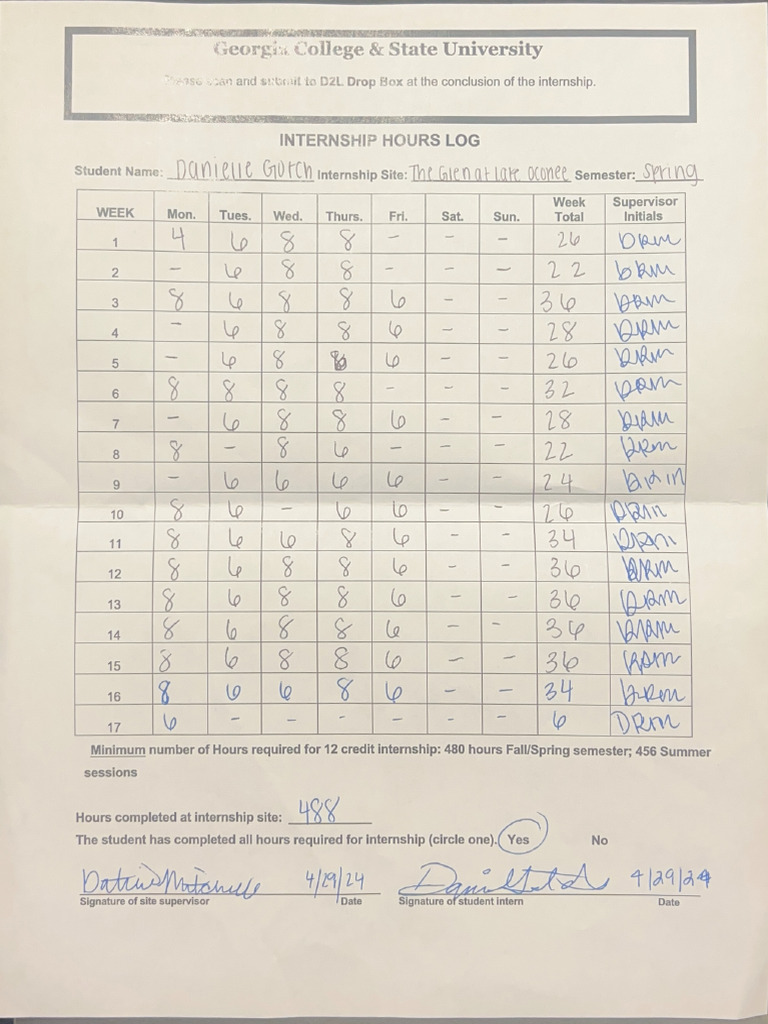 Georgia College & State University
Please scan and submit to D2L Drop Box at the conclusion of the internship.
INTERNSHIP HOURS LOG
Student Name: Danielle Gutch Internship Site: The Glen at lake oconee Semester: Spring
WEEK Mon. Tues. Wed. Thurs. Fri. Sat. Sun. Week Total Supervisor Initials
1 4 6 8 8 - - - 26 DRM
2 - 6 8 8 - - - 22 DRM
3 8 6 8 8 6 - - 36 DRM
4 - 6 8 8 6 - - 28 DRM
5 - 6 8 6 6 - - 26 DRM
6 8 8 8 8 - - - 32 DRM
7 - 6 8 8 6 - - 28 DRM
8 8 - 8 6 - - - 22 DRM
9 - 6 6 6 6 - - 24 DRM
10 8 6 - 6 6 - - 26 DRM
11 8 6 6 8 6 - - 34 DRM
12 8 6 8 8 6 - - 36 DRM
13 8 6 8 8 6 - - 36 DRM
14 8 6 8 8 6 - - 36 DRM
15 8 6 8 8 6 - - 36 DRM
16 8 6 6 8 6 - - 34 DRM
17 6 - - - - - - 6 DRM
Minimum number of Hours required for 12 credit internship: 480 hours Fall/Spring semester; 456 Summer
sessions
Hours completed at internship site: 488
The student has completed all hours required for internship (circle one). Yes No
4/29/24 4/29/24
Signature of site supervisor Date Signature of student intern Date